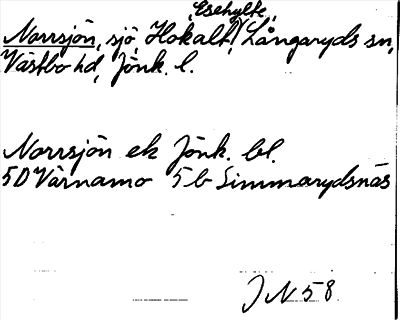 Esehylte,
Norrsjön, sjö, Hokalt, Långaryds sn,
Västbo hd, Jönk. l.
Norrsjön ek Jönk. bl.
5D Värnamo 5b Simmarydsnäs
JN 58